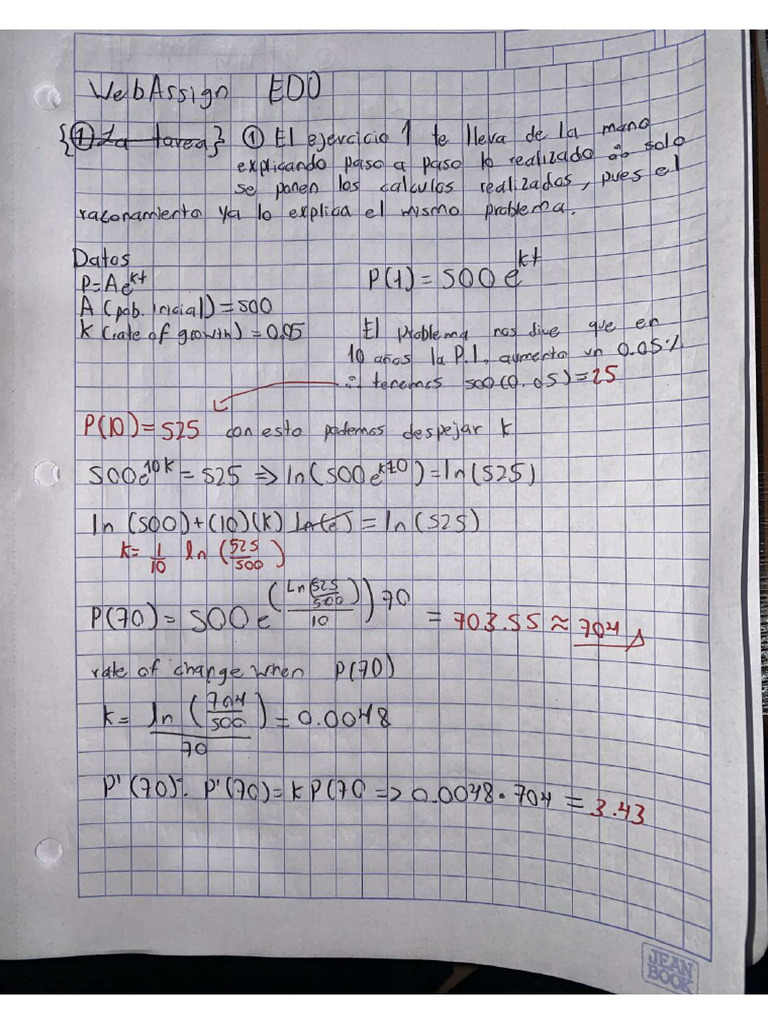 WebAssign EDO
{① La tarea} ① El ejercicio 1 te lleva de la mano
explicando paso a paso lo realizado ∴ solo
se ponen los calculos realizados, pues el
razonamiento ya lo explica el mismo problema.
Datos
P=Ae^{kt}
A (pob. inicial)=500
K (rate of growth)=0.05
P(t)=500e^{kt}
El problema nos dive que en
10 años la P.I. aumento un 0.05%
∴ tenemos 500(0.05)=25
P(10)=525 con esto podemos despejar k
500e^{10k}=525 ⇒ ln(500e^{k10})=ln(525)
ln(500)+(10)(k) ln(e)=ln(525)
k=1/10 ln(525/500)
P(70)=500e^{(Ln(525/500)/10)70} = 703.55≈704
rate of change when P(70)
k=ln(704/500)/70=0.0048
P'(70): P'(70)=kP(70 => 0.0048·704=3.43
JEAN
BOOK